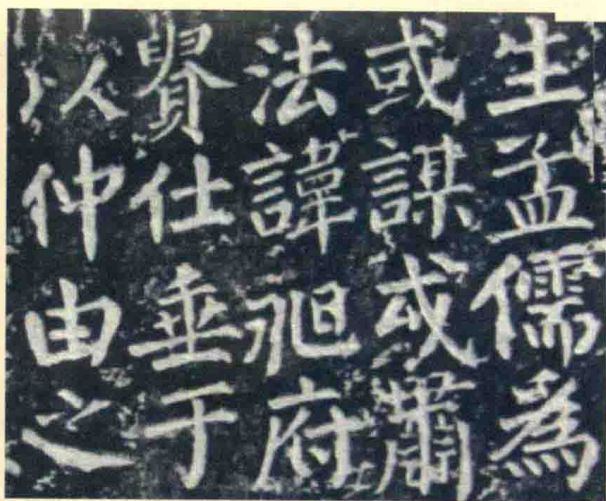 生孟儒為
或謀或肅
法諱昶府
賢仕垂于
以仲由之